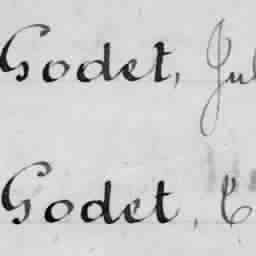 Godet, Jul
Godet, C